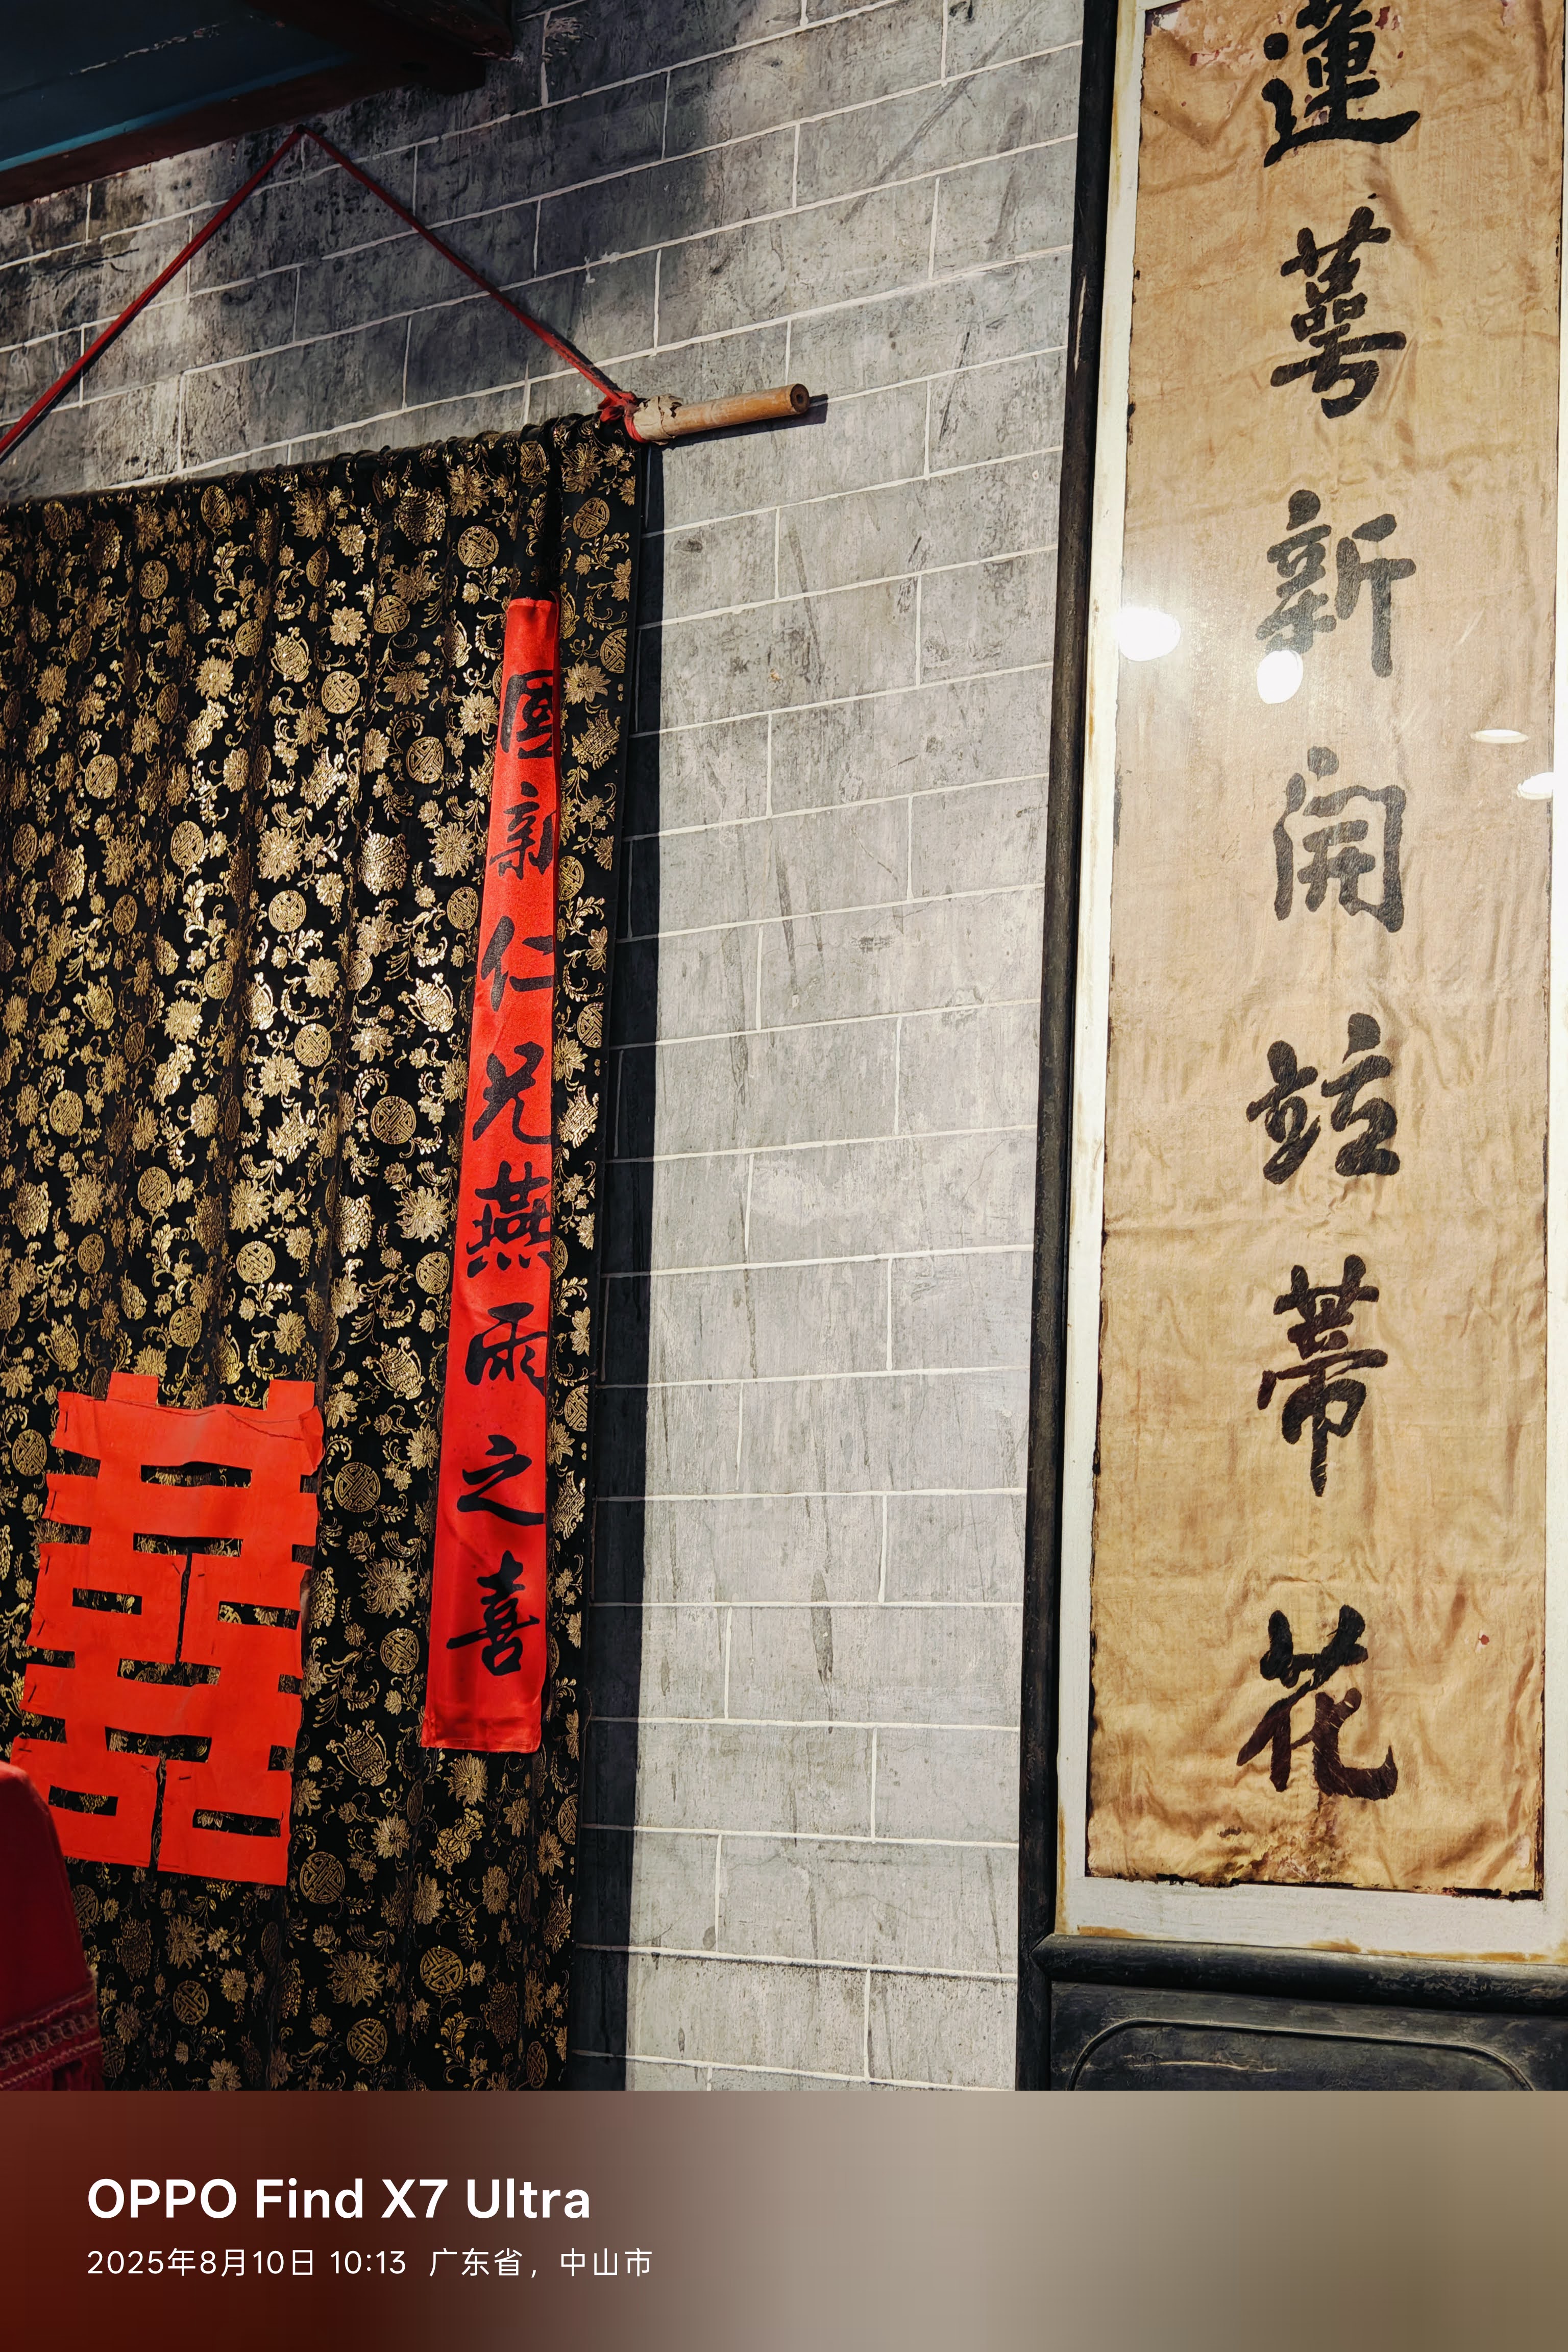 蓮萼新開竝蒂花
國新仁兄燕雨之喜
囍
OPPO Find X7 Ultra
2025年8月10日 10:13 广东省，中山市